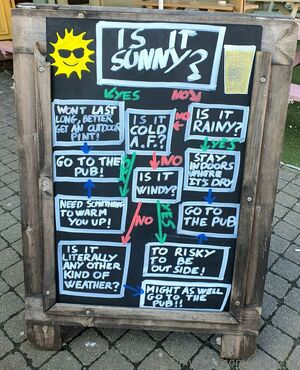 IS IT
SUNNY?
YES
NO
WON'T LAST
LONG, BETTER
GET AN OUTDOOR
PINT!
IS IT
COLD
A.F?
NO
IS IT
RAINY?
YES
GO TO THE
PUB!
YES
NO
STAY
INDOORS
WHERE
IT'S DRY
IS IT
WINDY?
NEED SOMETHING
TO WARM
YOU UP!
GO TO
THE PUB
NO
YES
IS IT
LITERALLY
ANY OTHER
KIND OF
WEATHER?
TO RISKY
TO BE
OUTSIDE!
MIGHT AS WELL
GO TO THE
PUB!!